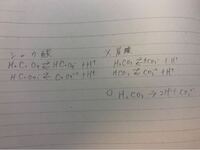 シュウ酸
H₂C₂O₄ ⇄ HC₂O₄⁻ + H⁺
HC₂O₄⁻ ⇄ C₂O₄²⁻ + H⁺
炭酸
H₂CO₃ ⇄ HCO₃⁻ + H⁺
HCO₃⁻ ⇄ CO₃²⁻ + H⁺
H₂CO₃ → 2H⁺ + CO₃²⁻